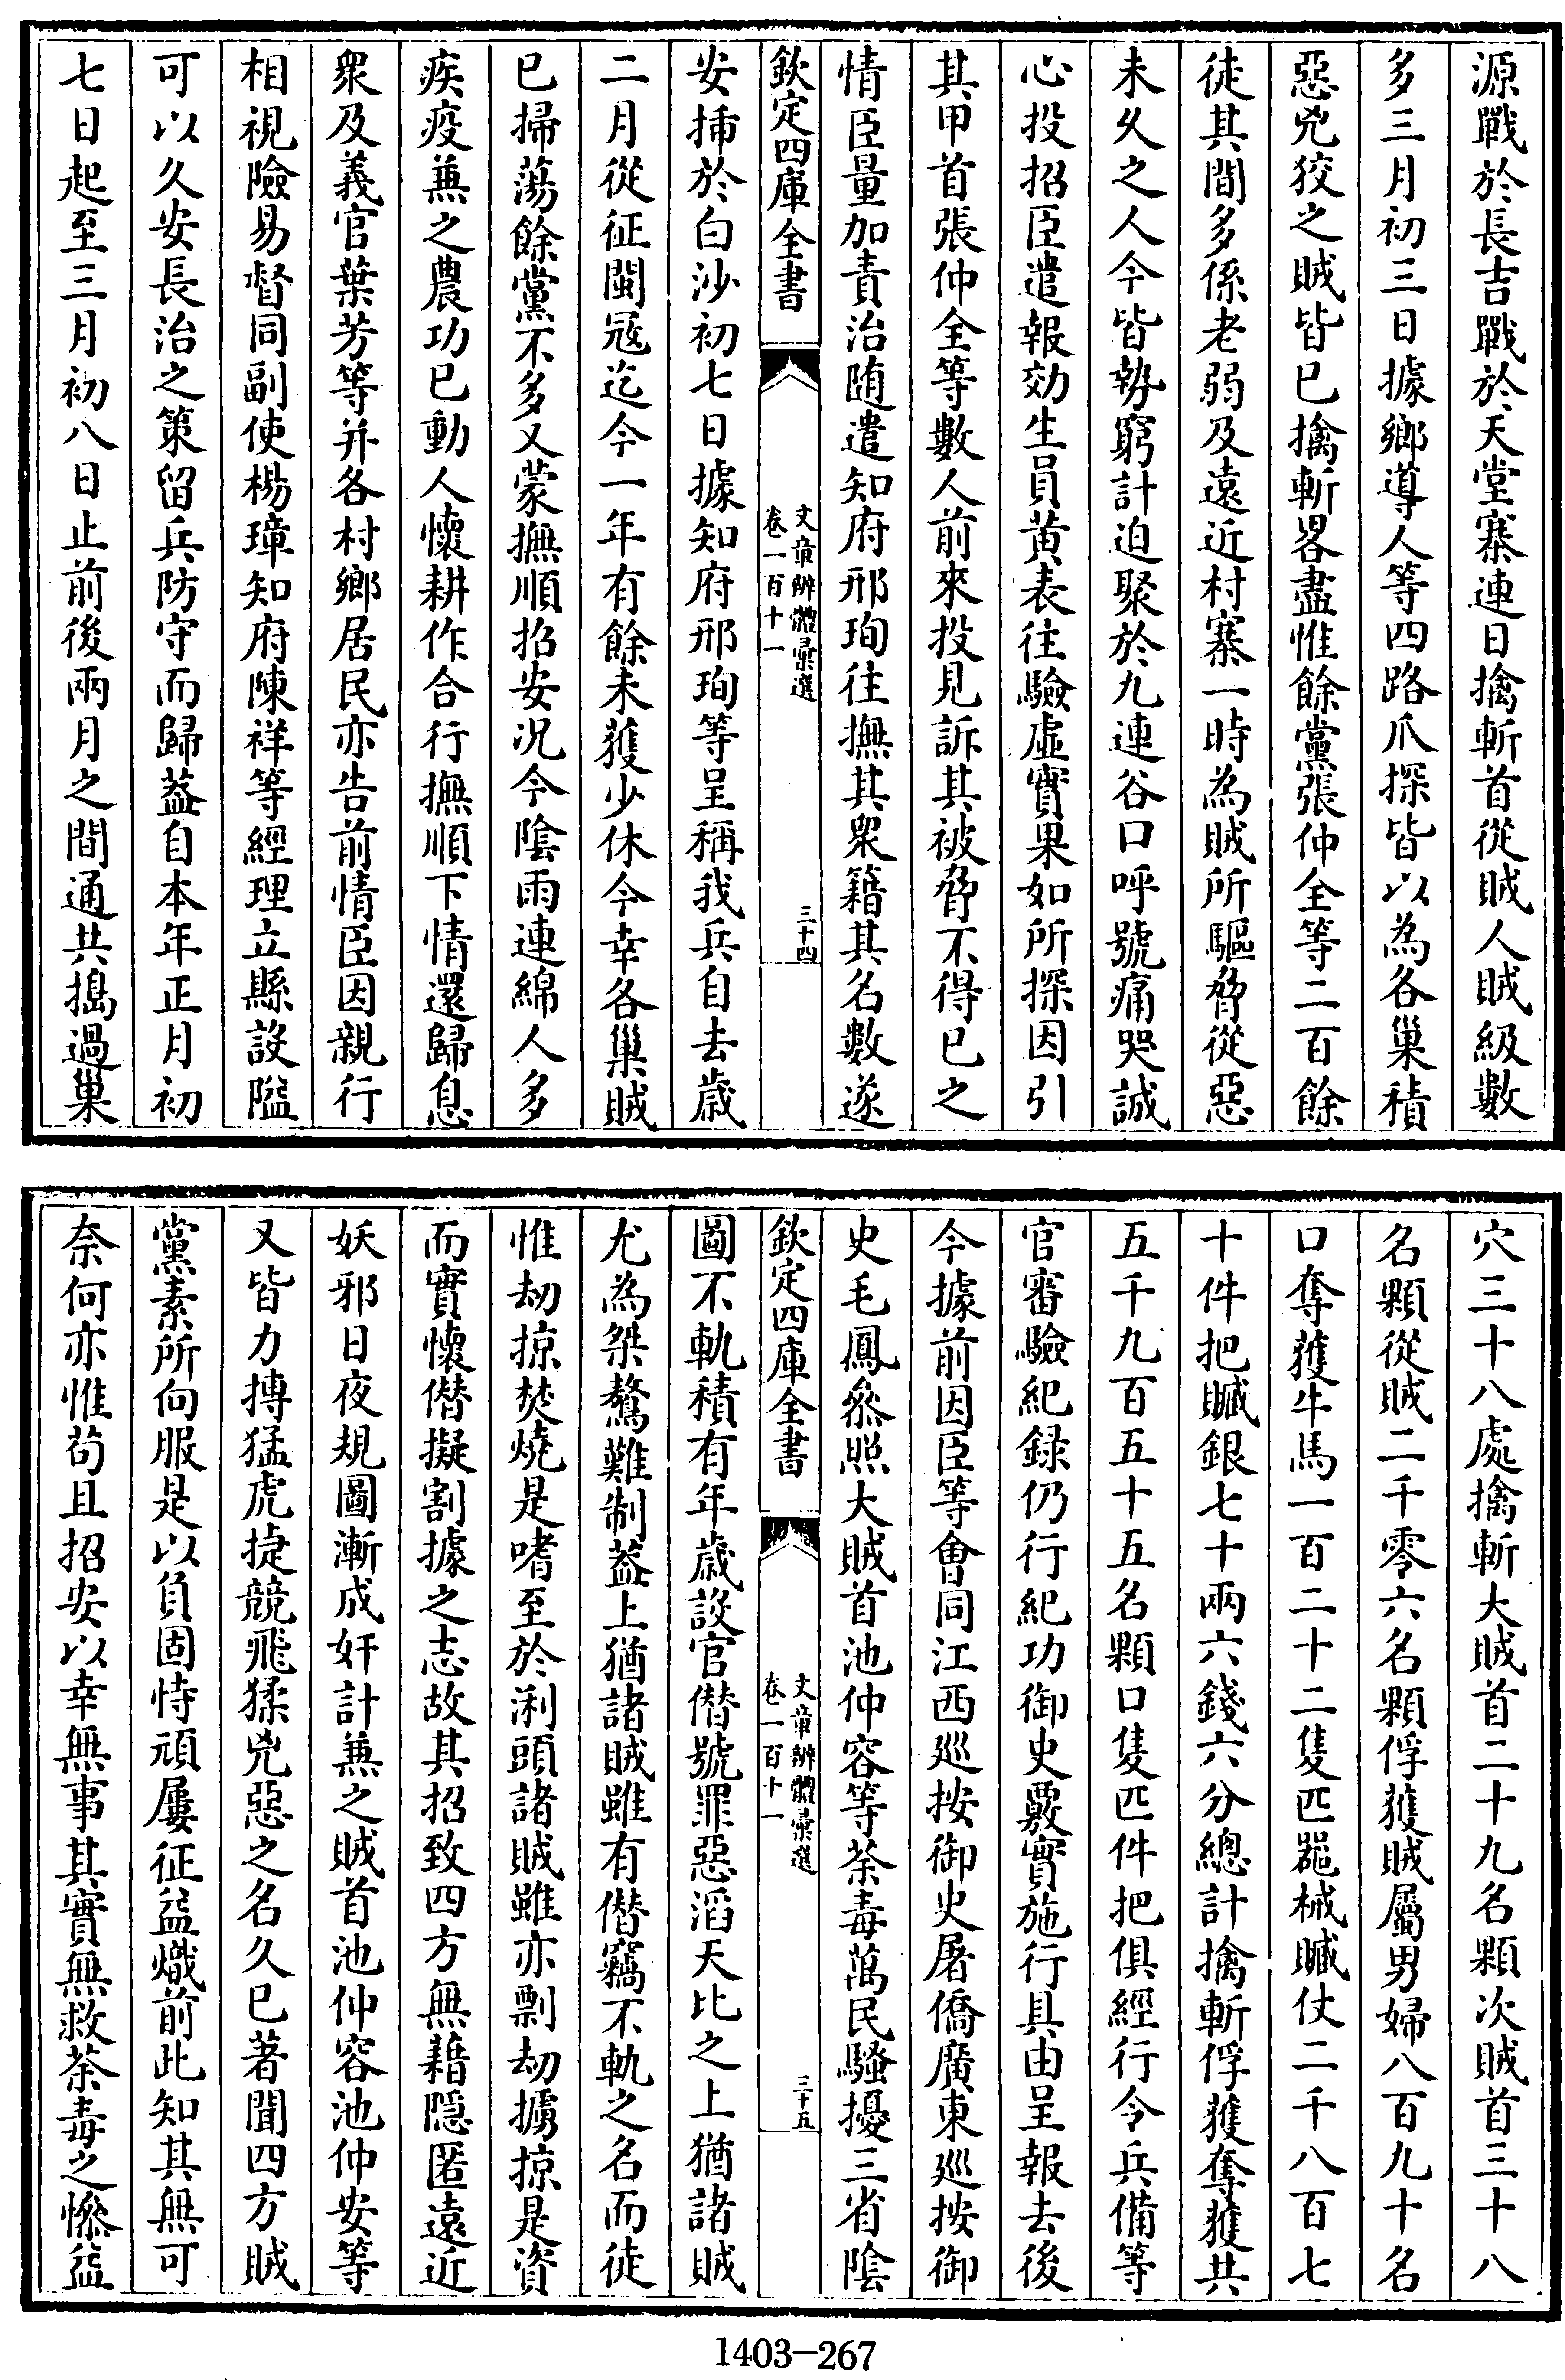 源戰於長吉戰於天堂寨連日擒斬首從賊人賊級數
多三月初三日據鄉導人等四路爪探皆以為各巢積
惡兇狡之賊皆已擒斬畧盡惟餘黨張仲全等二百餘
徒其間多係老弱及遠近村寨一時為賊所驅脅從惡
未乆之人今皆勢窮計迫聚於九連谷口呼號痛哭誠
心投招臣遣報効生員黄表往驗虛實果如所探因引
其甲首張仲全等數人前來投見訴其被脅不得已之
情臣量加責治随遣知府邢珣往撫其衆籍其名數遂
欽定四庫全書
文章辨體彙選
卷一百十一
三十四
安插於白沙初七日據知府邢珣等呈稱我兵自去歲
二月從征閩寇迄今一年有餘未獲少休今幸各巢賊
已掃蕩餘黨不多又蒙撫順招安况今陰雨連綿人多
疾疫兼之農功已動人懷耕作合行撫順下情還歸息
衆及義官葉芳等并各村鄉居民亦告前情臣因親行
相視險易督同副使楊璋知府陳祥等經理立縣設隘
可以久安長治之策留兵防守而歸葢自本年正月初
七日起至三月初八日止前後兩月之間通共搗過巢
穴三十八處擒斬大賊首二十九名顆次賊首三十八
名顆從賊二千零六名顆俘獲賊屬男婦八百九十名
口奪獲牛馬一百二十二隻匹器械贓仗二千八百七
十件把贓銀七十兩六錢六分總計擒斬俘獲奪獲共
五千九百五十五名顆口隻匹件把俱經行令兵備等
官審驗紀録仍行紀功御史覈實施行具由呈報去後
今據前因臣等會同江西廵按御史屠僑廣東廵按御
史毛鳳叅照大賊首池仲容等荼毒萬民騷擾三省陰
欽定四庫全書
文章辨體彙選
卷一百十一
三十五
圖不軌積有年歲設官僣號罪惡滔天比之上猶諸賊
尤為桀驁難制葢上猶諸賊雖有僣竊不軌之名而徒
惟劫掠焚燒是嗜至於浰頭諸賊雖亦剽劫擄掠是資
而實懷僣擬割據之志故其招致四方無藉隠匿遠近
妖邪日夜規圖漸成奸計兼之賊首池仲容池仲安等
又皆力搏猛虎捷競飛猱兇惡之名久已著聞四方賊
黨素所向服是以負固恃頑屢征益熾前此知其無可
奈何亦惟苟且招安以幸無事其實無救荼毒之慘益
1403-267